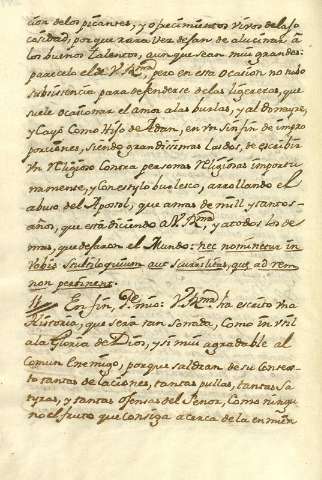 cion de los picantes, y ofrecimientos vivos de la so
caridad, porque rara vez dexan de alucinar, à
los buenos talentos, aunque sean mui grandes:
parecelo el de V. Rma, pero en esta ocasion no hubo
subsistencia para defenderse de las ligerezas, que
suele ocasionar el amor a las burlas, y al donayre,
y Cayò Como Hijo de Adan, en Un Sin fin de impro
porciones, siendo grandissimas las dos, de escribir
Un Religioso Contra personas Religiosas importu
namente, y con estylo burlesco, arrollando el
abuso del Apostol, que a mas de mill y tantos
años, que està diciendo a V. Rma, y a todos los de
mas, que dexaron el Mundo: nec nominetur in
Vobis Stultiloquium aut scurrilitas, quæ ad rem
non pertinent.
En fin, Pe. mio: V. Rma ha escrito Una
Historia, que serà tan Sonada, Como inutil
a la Gloria de Dios, y si mui agradable al
Comun Enemigo, porque saldran de su Contex
to tantas delaciones, tantas pullas, tantas Sa
tyras, y tantas ofensas del Señor, Como ningu
no el fruto que Consiga acerca de la enmien